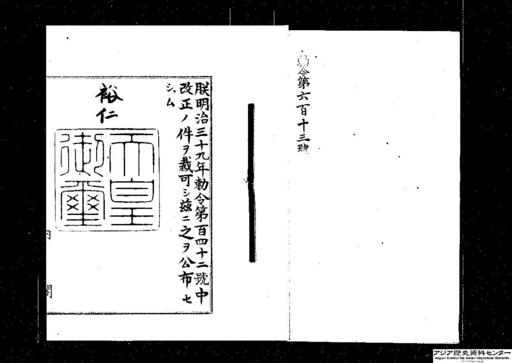 勅令第六百十三號
朕明治三十九年勅令第百四十二號中
改正ノ件ヲ裁可シ茲ニ之ヲ公布セ
シム
裕仁
天皇
御璽
内閣
アジア歴史資料センター
Japan Center for Asian Historical Records